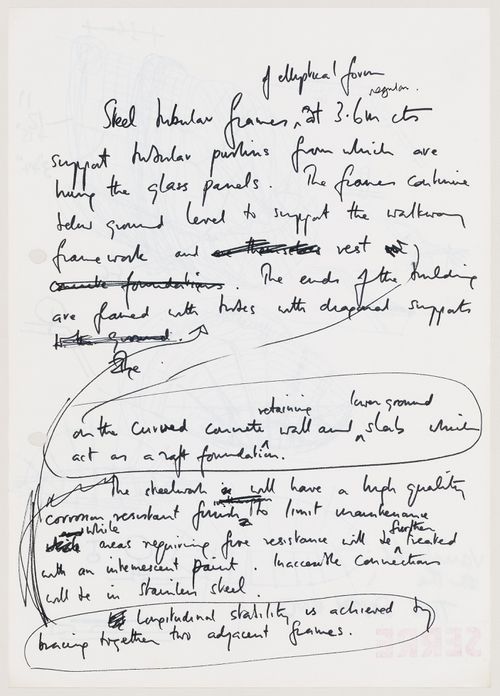 of elliptical form
regular
Steel tubular frames, at 3.6m cts
support tubular purlins from which are
hung the glass panels. The frames continue
below ground level to support the walkway
framework and themselves rest
concrete foundations. The ends of the building
are framed with tubes with diagonal supports
to the ground.
The
retaining lower ground
on the curved concrete wall and slab which
act as a raft foundation.
The steelwork is will have a high quality
corrosion resistant finish to limit maintenance
and while further
areas requiring fire resistance will be treated
with an intumescent paint. Inaccessible connections
will be in stainless steel.
Longitudinal stability is achieved by
bracing together two adjacent frames.
SEKRE